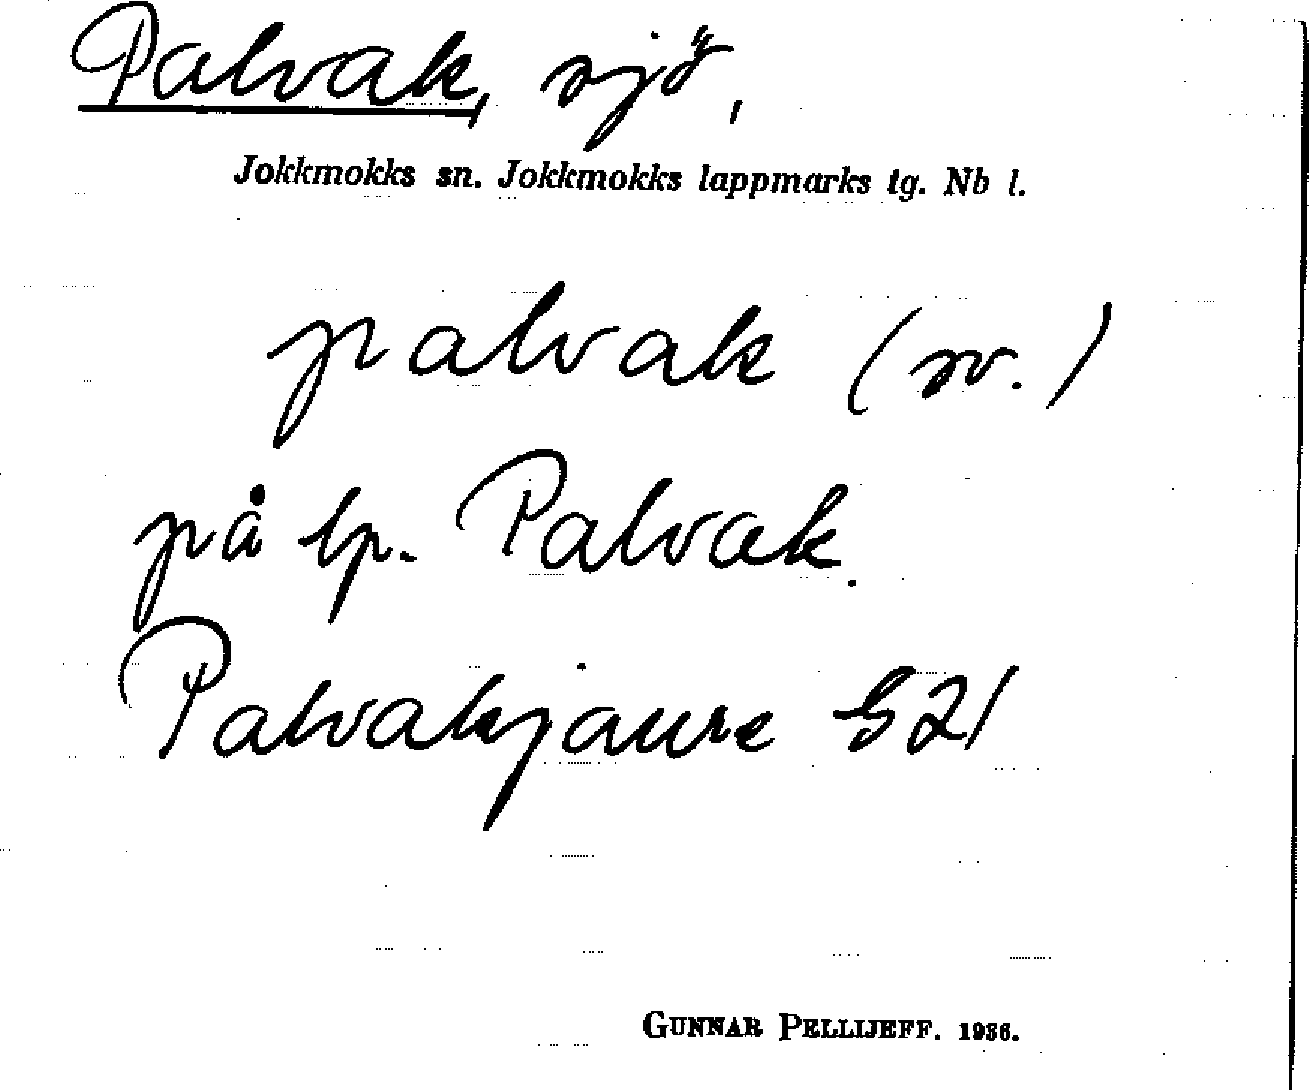 Palvak, sjö,
Jokkmokks sn. Jokkmokks lappmarks tg. Nb l.
palvak (sv.)
på lp. Palvak.
Palvakjaure G21
GUNNAR PELLIJEFF. 1936.